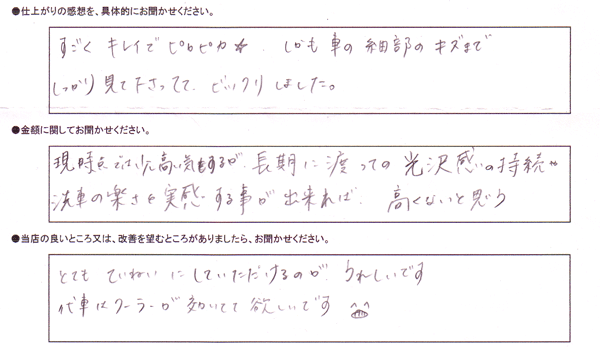 ●仕上がりの感想を、具体的にお聞かせください。
すごく キレイで ピカピカ☆. しかも 車の 細部の キズまで
しっかり 見て下さってて、ビックリしました。
●金額に関してお聞かせください。
現時点では少し高い気もするが、長期に渡っての 光沢感の持続や
洗車の楽さを実感する事が 出来れば、高くないと思う
●当店の良いところ又は、改善を望むところがありましたら、お聞かせください。
とても ていねいに していただけるのが、うれしいです
代車はクーラーが 効いてて 欲しいです